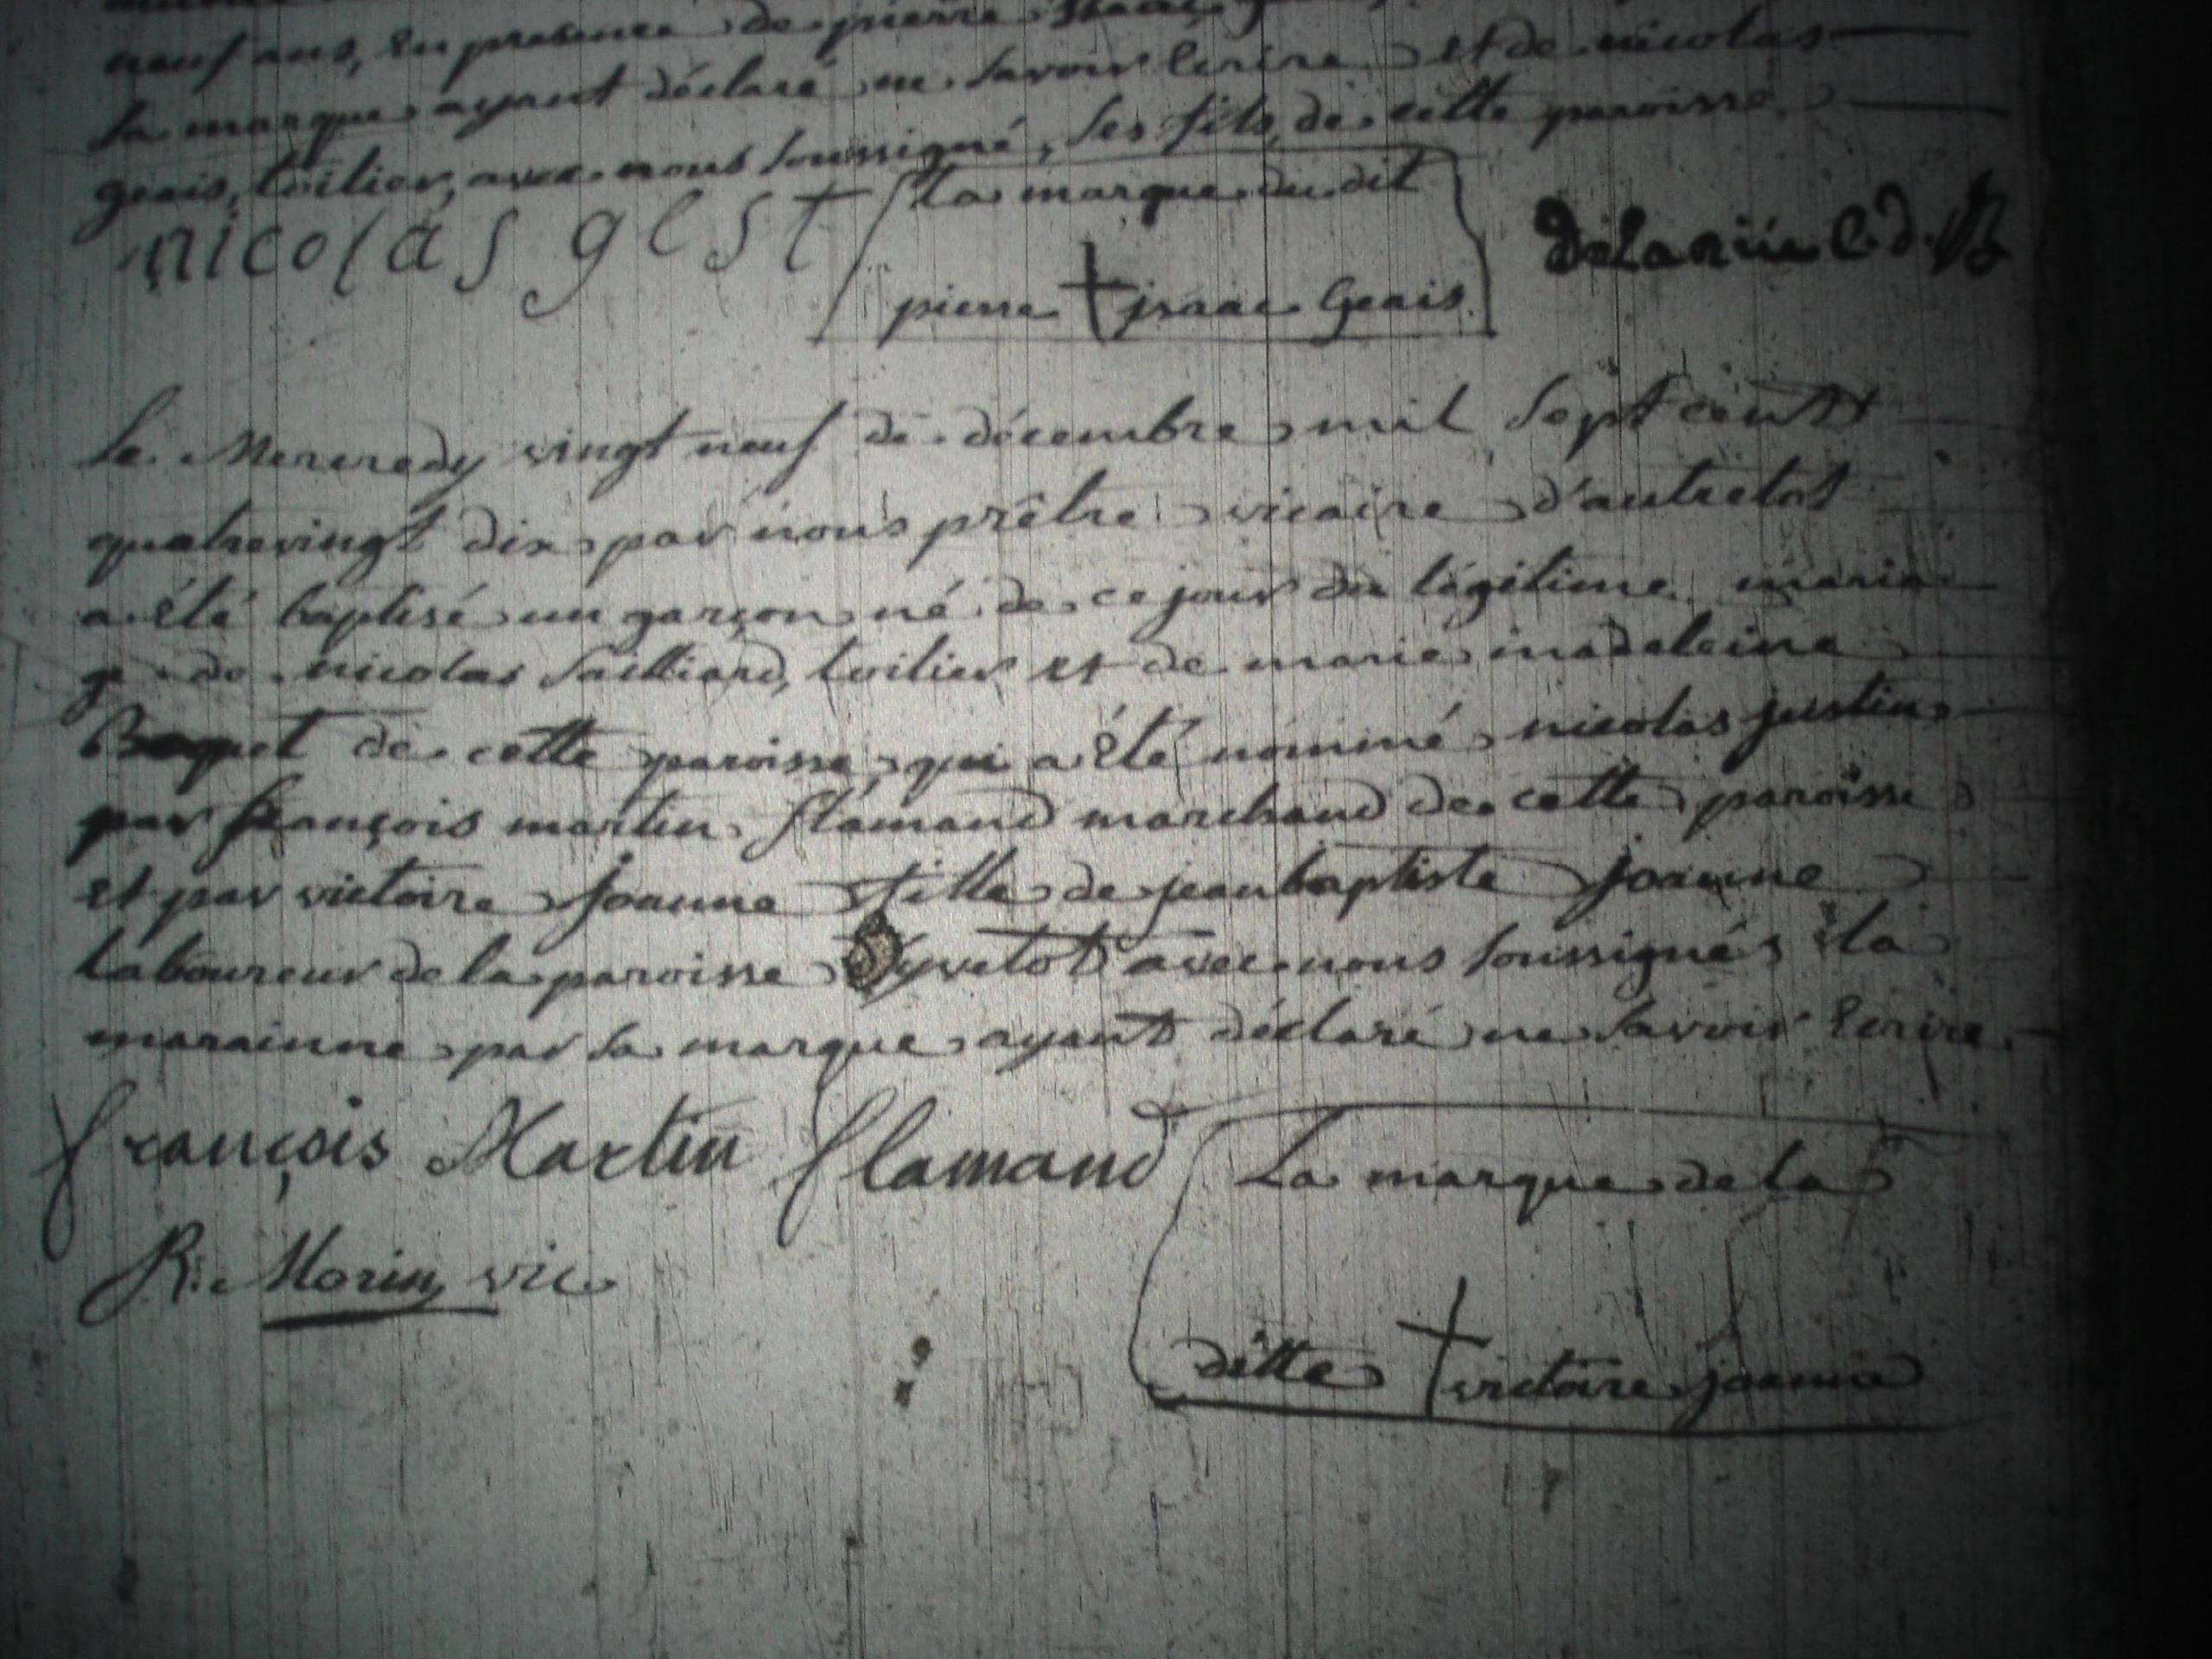 neuf ans, en presence de pierre isaac
sa marque ayant déclaré ne savoir Ecrire et de nicolas
geais, toilier, avec nous soussigné, ses fils, de cette paroisse.
nicolas gest
La marque du dit
pierre + isaac Geais.
delarüe C. d.
le Mercredy vingt neuf de décembre mil sept cent
quatrevingt dix par nous prêtre vicaire d'autretot
a été baptisé un garçon né de ce jour du légitime maria
ge de nicolas Sailliard, toilier et de marie madeleine
Boquet de cette paroisse, qui a été nommé nicolas justin
par françois martin flamand marchand de cette paroisse
et par victoire joanne fille de jean baptiste joanne
laboureur de la paroisse d'yvetot avec nous soussignés la
marainne par sa marque ayant déclaré ne savoir Ecrire.
françois Martin flamand
R. Morin vic
La marque de la
ditte + victoire joanne